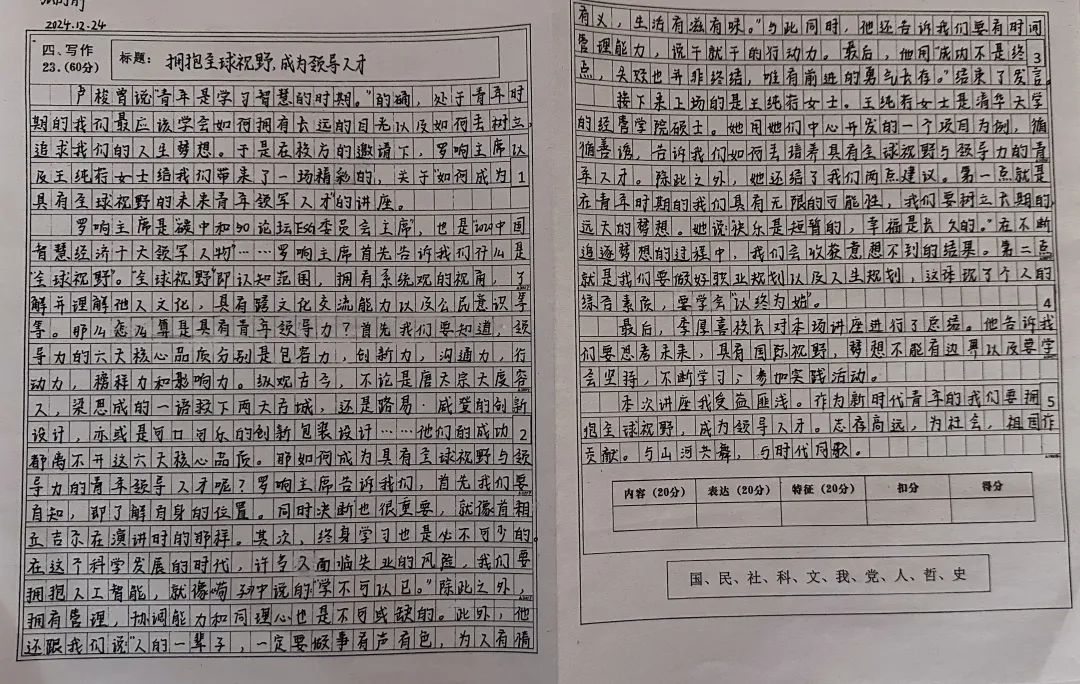 2024.12.24
四、写作
23.(60分)
标题：拥抱全球视野,成为领导人才
卢梭曾说"青年是学习智慧的时期。"的确，处于青年时
期的我们最应该学会如何拥有长远的目光以及如何去树立,
追求我们的人生梦想。于是在校方的邀请下，罗响主席以
及王纯荷女士给我们带来了一场精彩的，关于"如何成为
1
具有全球视野的未来青年领军人才"的讲座。
罗响主席是"碳中和50论坛ESG委员会主席"，也是"2024中国
智慧经济十大领军人物"……罗响主席首先告诉我们什么是
"全球视野"。"全球视野"即认知范围，拥有系统观的视角，了
解并理解他人文化，具有跨文化交流能力以及公民意识等
等。那么怎么算是具有青年领导力？首先我们要知道，领
导力的六大核心品质分别是包容力，创新力，沟通力，行
动力，榜样力和影响力。纵观古今，不论是唐太宗大度容
人，梁思成的一语救下两大古城，还是路易·威登的创新
设计，亦或是可口可乐的创新包装设计……他们的成功
2
都离不开这六大核心品质。那如何成为具有全球视野与领
导力的青年领导人才呢？罗响主席告诉我们，首先我们要
自知，即了解自身的位置。同时决断也很重要，就像首相
丘吉尔在演讲时的那样。其次，终身学习也是必不可少的。
在这个科学发展的时代，许多人面临失业的风险，我们要
拥抱人工智能，就像荀子中说的"学不可以已。"除此之外，
拥有管理，协调能力和同理心也是不可或缺的。此外，他
还跟我们说"人的一辈子，一定要做事有声有色，为人有情
有义，生活有滋有味。"与此同时，他还告诉我们要有时间
管理能力，说干就干的行动力。最后，他用"成功不是终
3
点，失败也并非终结，唯有前进的勇气长存。"结束了发言。
接下来上场的是王纯荷女士。王纯荷女士是清华大学
的经管学院硕士。她用她们中心开发的一个项目为例，循
循善诱，告诉我们如何去培养具有全球视野与领导力的青
年人才。除此之外，她还给了我们两点建议。第一点就是
在青年时期的我们具有无限的可能性，我们要树立长期的,
远大的梦想。她说"快乐是短暂的，幸福是长久的。"在不断
追逐梦想的过程中，我们会收获意想不到的结果。第二点
就是我们要做好职业规划以及人生规划，这体现了个人的
综合素质，要学会"以终为始"。
4
最后，李厚喜校长对本场讲座进行了总结。他告诉我
们要思考未来，具有国际视野，梦想不能有边界以及要学
会坚持，不断学习，参加实践活动。
本次讲座我受益匪浅。作为新时代青年的我们要拥
5
抱全球视野，成为领导人才。志存高远，为社会，祖国作
贡献。与山河共舞，与时代同歌。
内容（20分） 表达（20分） 特征（20分） 扣分 得分
国、民、社、科、文、我、党、人、哲、史